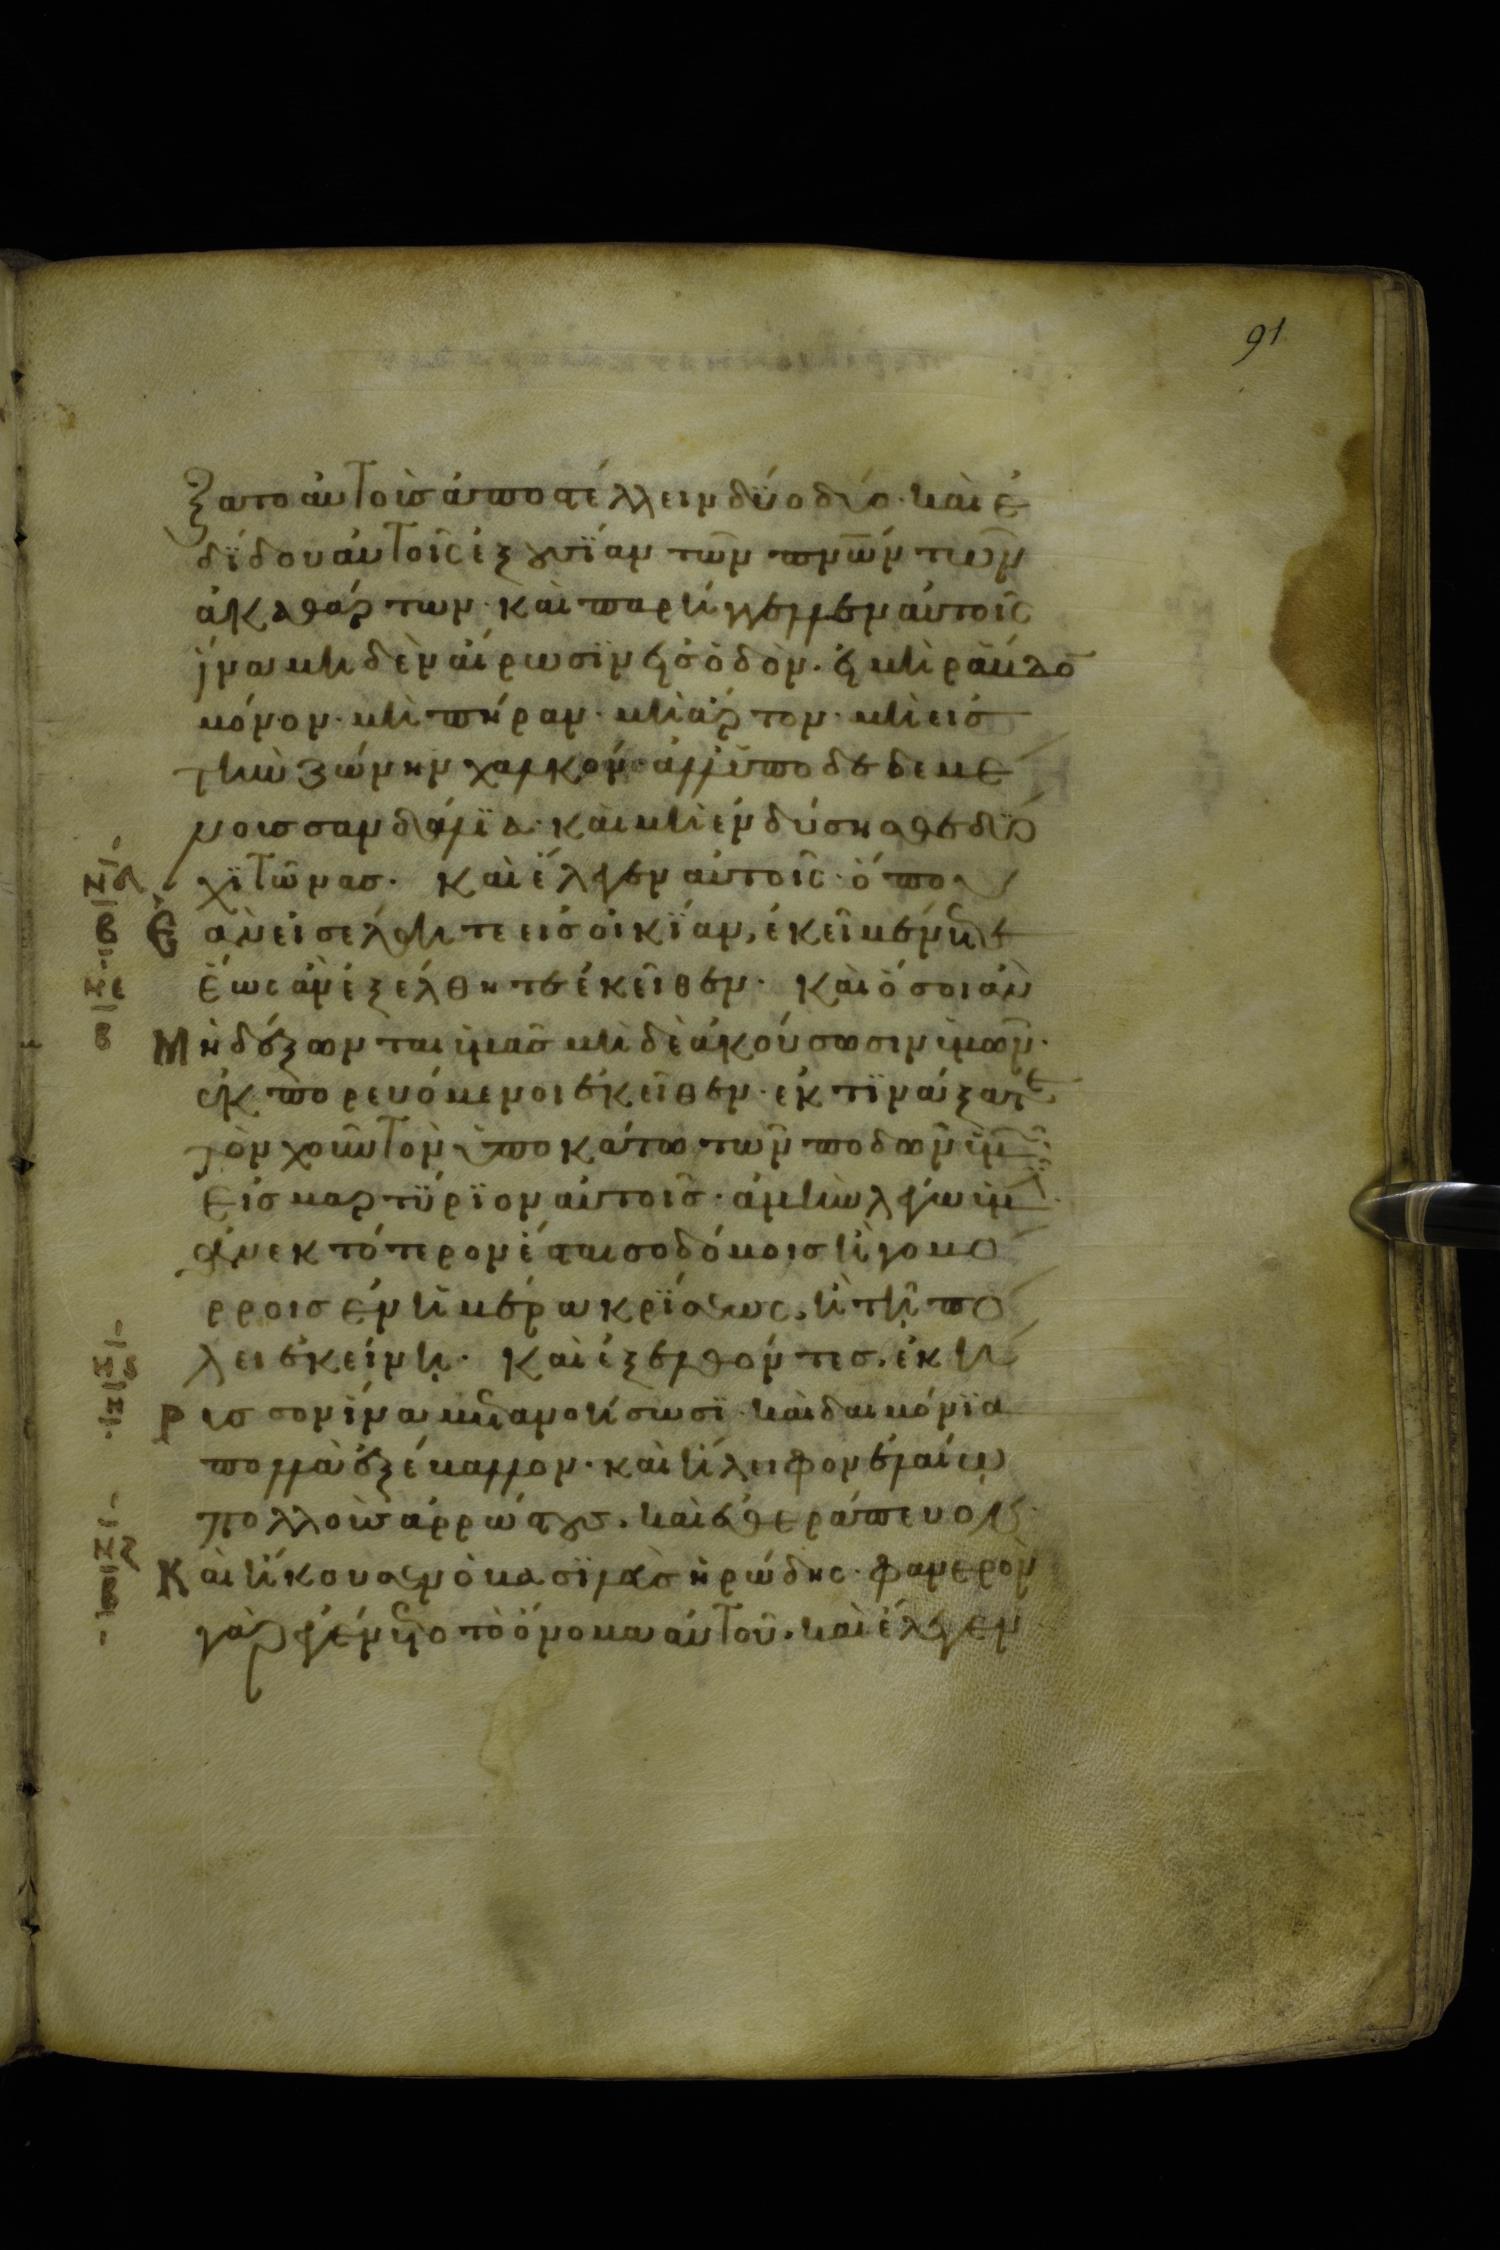 91
ξατο αὐτοὺς ἀποστέλλειν δύο δύο· καὶ ἐ
δίδου αὐτοῖς ἐξουσίαν τῶν πνῶν τῶν
ἀκαθάρτων· καὶ παρήγγειλεν αὐτοῖς
ἵνα μηδὲν αἴρωσιν εἰς ὁδὸν· εἰ μὴ ράβδο
μόνον· μὴ πήραν· μὴ ἄρτον· μὴ εἰς
τὴν ζώνην χαλκόν· ἀλλ' ὑποδεδεμέ
νοις σανδάλϊα· καὶ μὴ ἐνδύσησθε δύο
χϊτῶνας· καὶ ἔλεγεν αὐτοῖς· ὅπου
Ἐ ἀν εἰσέλθητε εἰς οἰκίαν, ἐκεῖ μένετε
ἕως ἀν ἐξέλθητε ἐκεῖθεν· καὶ ὅσοι ἀν
Μὴ δέξωνται ὑμᾶς μηδὲ ἀκούσωσιν ὑμῶν·
ἐκπορευόμενοι ἐκεῖθεν· ἐκτϊνάξατε
τὸν χοῦν τὸν ὑποκάτω τῶν ποδῶν ὑμ
εἰς μαρτύρϊον αὐτοῖς· ἀμὴν λέγω ὑμ
ἀνεκτότερον ἔσται σοδόμοις ἢ γομο
ρροις ἐν ἡμέρα κρίσεως, ἢ τῇ πό
λει ἐκείνῃ· καὶ ἐξελθόντες, ἐκή
Ρυσσον ἵνα μετανοήσωσϊ· καὶ δαιμόνϊα
πολλὰ ἐξέβαλλον· καὶ ἤλειφον ἐλαίω
πολλοὺς ἀρρώστους, καὶ ἐθεράπευον
Καὶ ἤκουσεν ὁ βασϊλεὺς ἡρώδης· φανερὸν
γὰρ ἐγένετο τὸ ὄνομα αὐτοῦ, καὶ ἔλεγεν